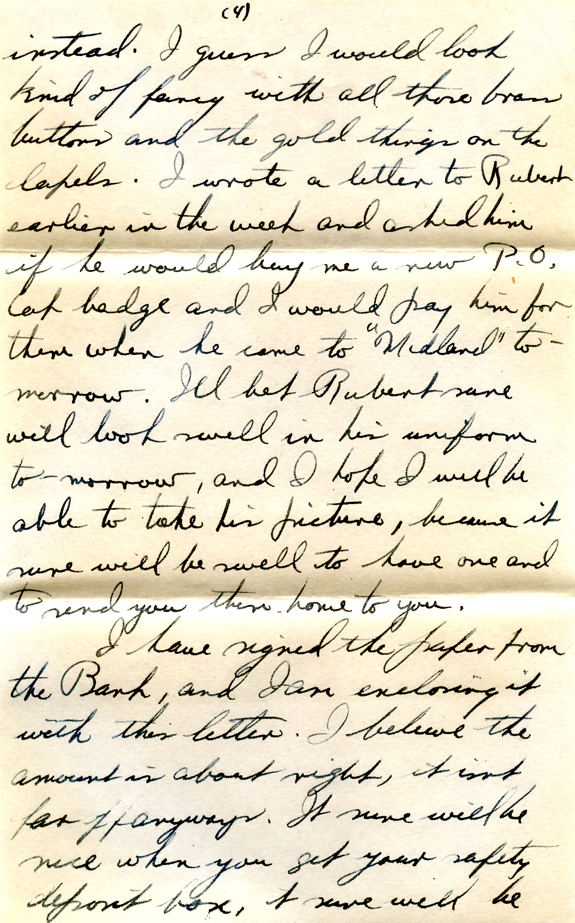 (4)
instead. I guess I would look
kind of fancy with all those brass
buttons and the gold things on the
lapels. I wrote a letter to Robert
earlier in the week and asked him
if he would buy me a new P.O.
cap badge and I would pay him for
them when he came to "Midland" to-
morrow. I'll bet Robert sure
will look swell in his uniform
to-morrow, and I hope I will be
able to take his picture, because it
sure will be swell to have one and
to send you them home to you.
I have signed the paper from
the Bank, and I am enclosing it
with this letter. I believe the
amount is about right, it isnt
far off anyways. It sure will be
nice when you get your safety
deposit box, it sure will be